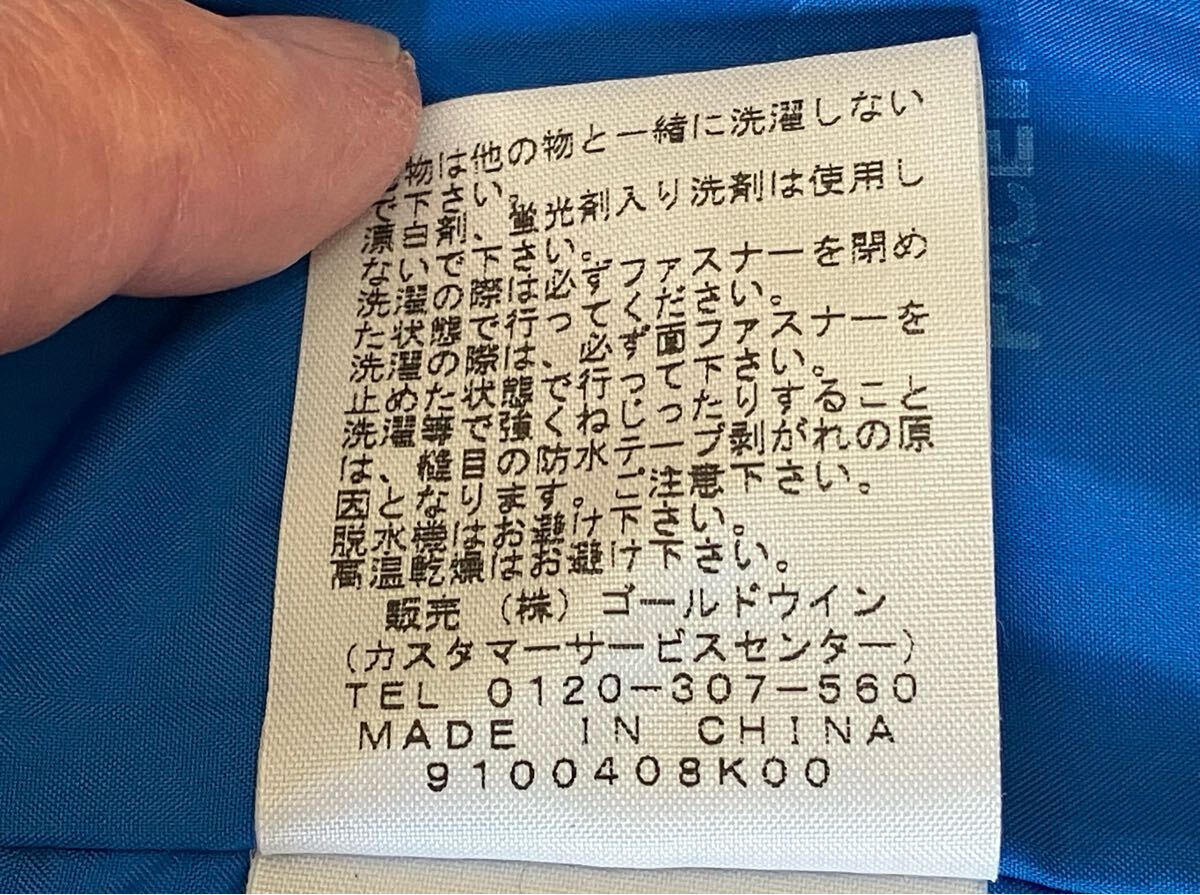 物は他の物と一緒に洗濯しない
で下さい。
漂白剤、蛍光剤入り洗剤は使用し
ないで下さい。
洗濯の際は必ずファスナーを閉め
た状態で行ってください。
洗濯の際は、必ず面ファスナーを
止めた状態で行って下さい。
洗濯等で強くねじったりすること
は、縫目の防水テープ剥がれの原
因となります。ご注意下さい。
脱水機はお避け下さい。
高温乾燥はお避け下さい。
販売 (株) ゴールドウイン
(カスタマーサービスセンター)
TEL 0120-307-560
MADE IN CHINA
9100408K00